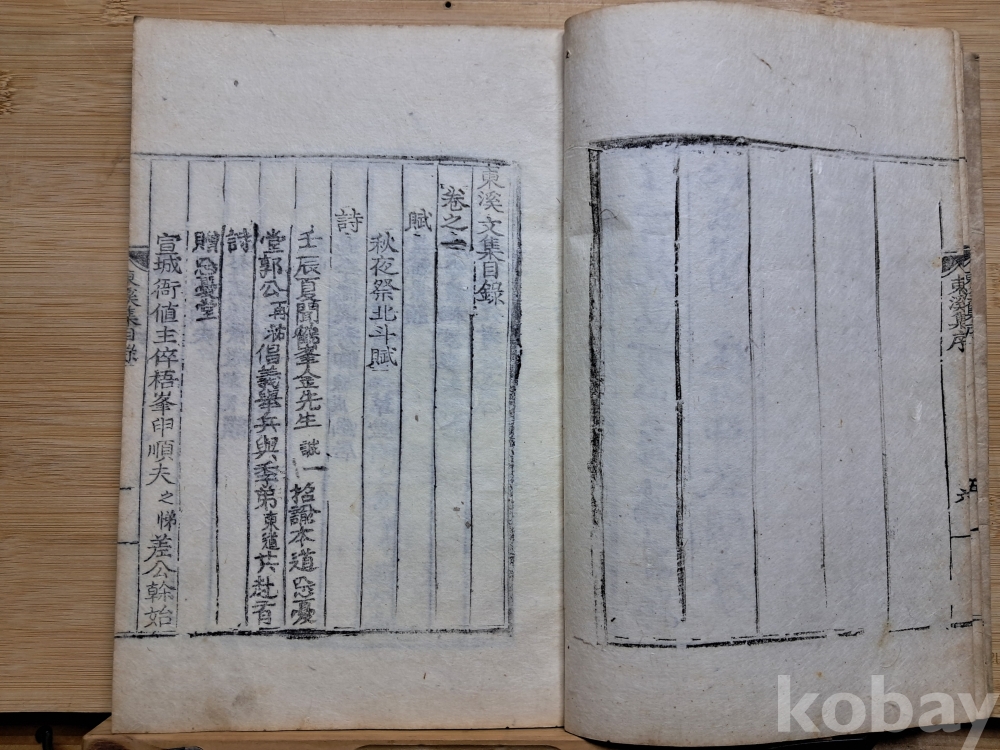 東溪集序
五
六
東溪文集目錄
卷之一
賦
秋夜祭北斗賦
詩
壬辰夏聞鶴峯金先生誠一招諭本道忘憂
堂郭公再祐倡義擧兵與季弟東道共赴有
詩
贈忘憂堂
宣城衙値主倅梧峯申順夫之悌差公幹始
東溪集目錄
kobay